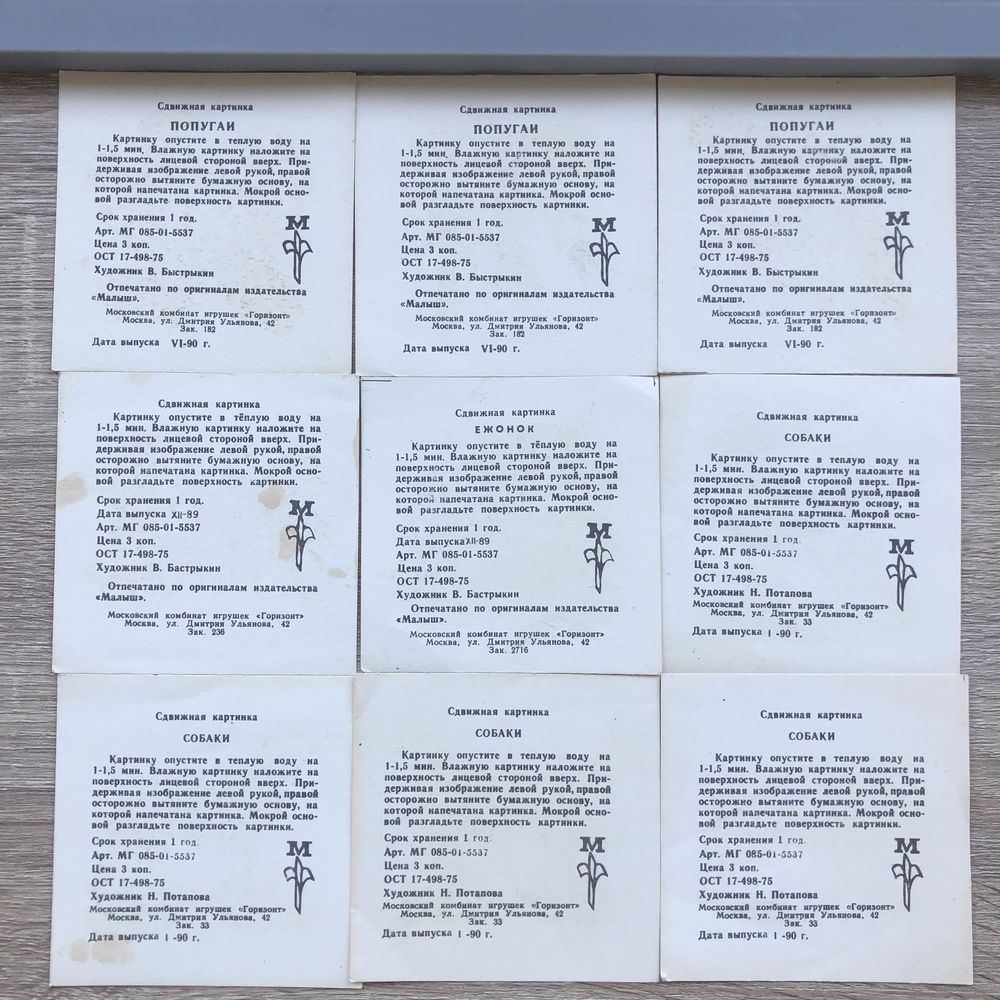 Сдвижная картинка
ПОПУГАИ
Картинку опустите в теплую воду на
1-1,5 мин. Влажную картинку наложите на
поверхность лицевой стороной вверх. При-
держивая изображение левой рукой, правой
осторожно вытяните бумажную основу, на
которой напечатана картинка. Мокрой осно-
вой разгладьте поверхность картинки.
Срок хранения 1 год.
Арт. МГ 085-01-5537
Цена 3 коп.
ОСТ 17-498-75
Художник В. Быстрыкин
М
Отпечатано по оригиналам издательства
«Малыш».
Московский комбинат игрушек «Горизонт»
Москва, ул. Дмитрия Ульянова, 42
Зак. 182
Дата выпуска VI-90 г.
Сдвижная картинка
ПОПУГАИ
Картинку опустите в теплую воду на
1-1,5 мин. Влажную картинку наложите на
поверхность лицевой стороной вверх. При-
держивая изображение левой рукой, правой
осторожно вытяните бумажную основу, на
которой напечатана картинка. Мокрой осно-
вой разгладьте поверхность картинки.
Срок хранения 1 год.
Арт. МГ 085-01-5537
Цена 3 коп.
ОСТ 17-498-75
Художник В. Быстрыкин
М
Отпечатано по оригиналам издательства
«Малыш».
Московский комбинат игрушек «Горизонт»
Москва, ул. Дмитрия Ульянова, 42
Зак. 182
Дата выпуска VI-90 г.
Сдвижная картинка
ПОПУГАИ
Картинку опустите в теплую воду на
1-1,5 мин. Влажную картинку наложите на
поверхность лицевой стороной вверх. При-
держивая изображение левой рукой, правой
осторожно вытяните бумажную основу, на
которой напечатана картинка. Мокрой осно-
вой разгладьте поверхность картинки.
Срок хранения 1 год.
Арт. МГ 085-01-5537
Цена 3 коп.
ОСТ 17-498-75
Художник В. Быстрыкин
М
Отпечатано по оригиналам издательства
«Малыш».
Московский комбинат игрушек «Горизонт»
Москва, ул. Дмитрия Ульянова, 42
Зак. 182
Дата выпуска VI-90 г.
Сдвижная картинка
Картинку опустите в тёплую воду на
1-1,5 мин. Влажную картинку наложите на
поверхность лицевой стороной вверх. При-
держивая изображение левой рукой, правой
осторожно вытяните бумажную основу, на
которой напечатана картинка. Мокрой осно-
вой разгладьте поверхность картинки.
Срок хранения 1 год.
Дата выпуска XII-89
Арт. МГ 085-01-5537
Цена 3 коп.
ОСТ 17-498-75
Художник В. Бастрыкин
М
Отпечатано по оригиналам издательства
«Малыш».
Московский комбинат игрушек «Горизонт»
Москва, ул. Дмитрия Ульянова, 42
Зак. 236
Сдвижная картинка
ЕЖОНОК
Картинку опустите в тёплую воду на
1-1,5 мин. Влажную картинку наложите на
поверхность лицевой стороной вверх. При-
держивая изображение левой рукой, правой
осторожно вытяните бумажную основу, на
которой напечатана картинка. Мокрой осно-
вой разгладьте поверхность картинки.
Срок хранения 1 год.
Дата выпуска XII-89
Арт. МГ 085-01-5537
Цена 3 коп.
ОСТ 17-498-75
Художник В. Бастрыкин
М
Отпечатано по оригиналам издательства
«Малыш».
Московский комбинат игрушек «Горизонт»
Москва, ул. Дмитрия Ульянова, 42
Зак. 2716
Сдвижная картинка
СОБАКИ
Картинку опустите в теплую воду на
1-1,5 мин. Влажную картинку наложите на
поверхность лицевой стороной вверх. При-
держивая изображение левой рукой, правой
осторожно вытяните бумажную основу, на
которой напечатана картинка. Мокрой осно-
вой разгладьте поверхность картинки.
Срок хранения 1 год.
Арт. МГ 085-01-5537
Цена 3 коп.
ОСТ 17-498-75
Художник Н. Потапова
М
Московский комбинат игрушек «Горизонт»
Москва, ул. Дмитрия Ульянова, 42
Зак. 33
Дата выпуска I -90 г.
Сдвижная картинка
СОБАКИ
Картинку опустите в теплую воду на
1-1,5 мин. Влажную картинку наложите на
поверхность лицевой стороной вверх. При-
держивая изображение левой рукой, правой
осторожно вытяните бумажную основу, на
которой напечатана картинка. Мокрой осно-
вой разгладьте поверхность картинки.
Срок хранения 1 год.
Арт. МГ 085-01-5537
Цена 3 коп.
ОСТ 17-498-75
Художник Н. Потапова
М
Московский комбинат игрушек «Горизонт»
Москва, ул. Дмитрия Ульянова, 42
Зак. 33
Дата выпуска I -90 г.
Сдвижная картинка
СОБАКИ
Картинку опустите в теплую воду на
1-1,5 мин. Влажную картинку наложите на
поверхность лицевой стороной вверх. При-
держивая изображение левой рукой, правой
осторожно вытяните бумажную основу, на
которой напечатана картинка. Мокрой осно-
вой разгладьте поверхность картинки.
Срок хранения 1 год.
Арт. МГ 085-01-5537
Цена 3 коп.
ОСТ 17-498-75
Художник Н. Потапова
М
Московский комбинат игрушек «Горизонт»
Москва, ул. Дмитрия Ульянова, 42
Зак. 33
Дата выпуска I -90 г.
Сдвижная картинка
СОБАКИ
Картинку опустите в теплую воду на
1-1,5 мин. Влажную картинку наложите на
поверхность лицевой стороной вверх. При-
держивая изображение левой рукой, правой
осторожно вытяните бумажную основу, на
которой напечатана картинка. Мокрой осно-
вой разгладьте поверхность картинки.
Срок хранения 1 год.
Арт. МГ 085-01-5537
Цена 3 коп.
ОСТ 17-498-75
Художник Н. Потапова
М
Московский комбинат игрушек «Горизонт»
Москва, ул. Дмитрия Ульянова, 42
Зак. 33
Дата выпуска I -90 г.